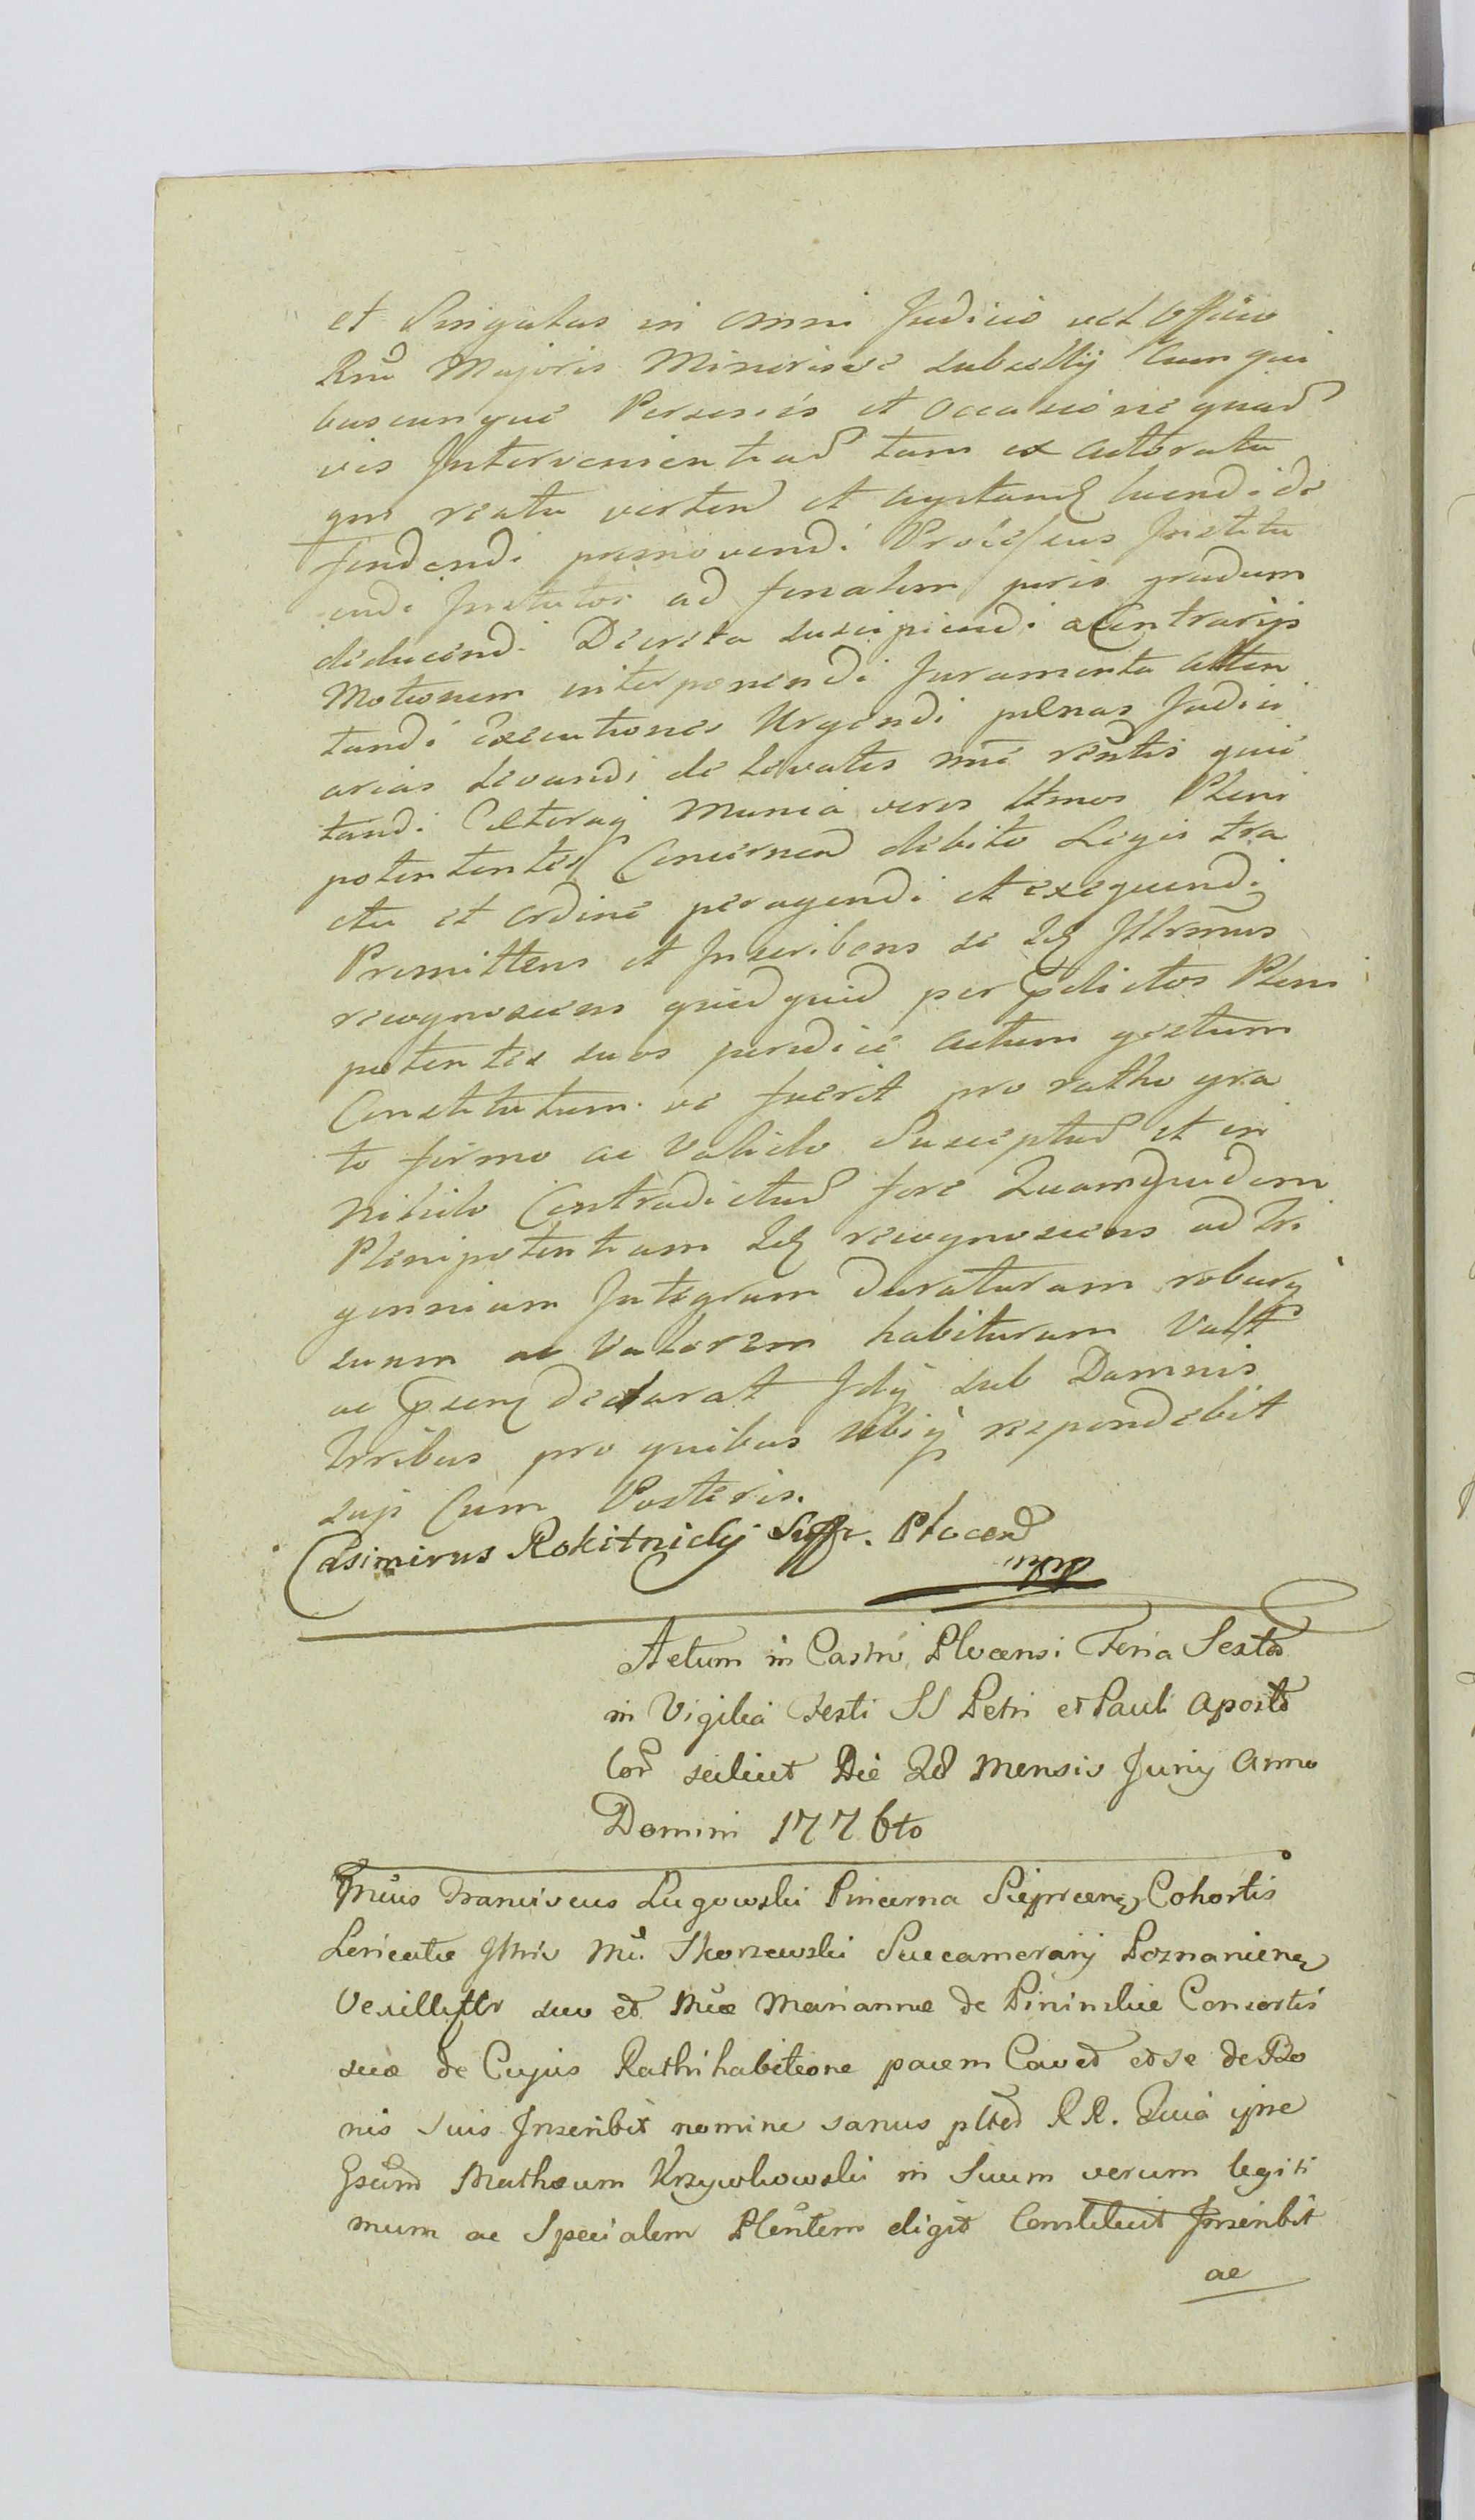 et Singulas in omni Judicio vel Officio
Rni Majoris Minorisve Subsellij cum qui
buscunque Personis et occasione quad
vis Intervenientiad tam ex actoratu
qm reatu verten et agitan luendi de
fendendi promovendi Processus Institu
endi Institutos ad finalem juris gradum
deducend. Decreta suscipiendi a Contrarijs
Motionem interponendi Juramenta atten
tandi Executiones Urgendi pænas Judici
arias levandi de levatis me rentis quie
tandi Cæteraq Munia veros Ltmos Pleni
potententes Concernen debito Legis tra
ctu et ordine peragendi et exequendi
Promittens et Inscribens se Idq Illrmus
recognoscens quidquid per pdictos Pleni
potentes suos juridice actum gestum
Constitutum ve fuerit pro ratho gra
to firmo ac Valido Suscepturd et in
nihilo Contradicturd fore Quamquidem
Plenipotentiam Idq recognoscens ad Tri
gennium Integrum Duraturam roburq
suum ac Valorem habituram Vult
ac psenq declarat Idq sub Damnis
Trribus pro quibus Ubiq respondebit
sup Cum Posteris.
Casimirus Rokitnicky Suffr. Plocen
mpp
Actum in Castro Plocensi Feria Sexta
in Vigilia Festi SS Petri et Pauli aposto
lor scilicet Die 28 Mensis Junij Anno
Domini 1776to
Mcus Franciscus Lugowski Pincerna Sieprcenq Cohortis
Loricatæ Illris Mci Skorzewski Succamerarij Posnanienq
Vexillifer suo et Mcæ Mariannæ de Pininskie Consortis
suæ de Cujus Rathihabitione pacem Cavet et se de Bo
nis suis Inscribit nomine sanus ptter R R. Quia ipse
Gsum Mathæum Krzywkowski in Suum verum legiti
mum ac Specialem Plentem eligit Constituit Inscribit
ac